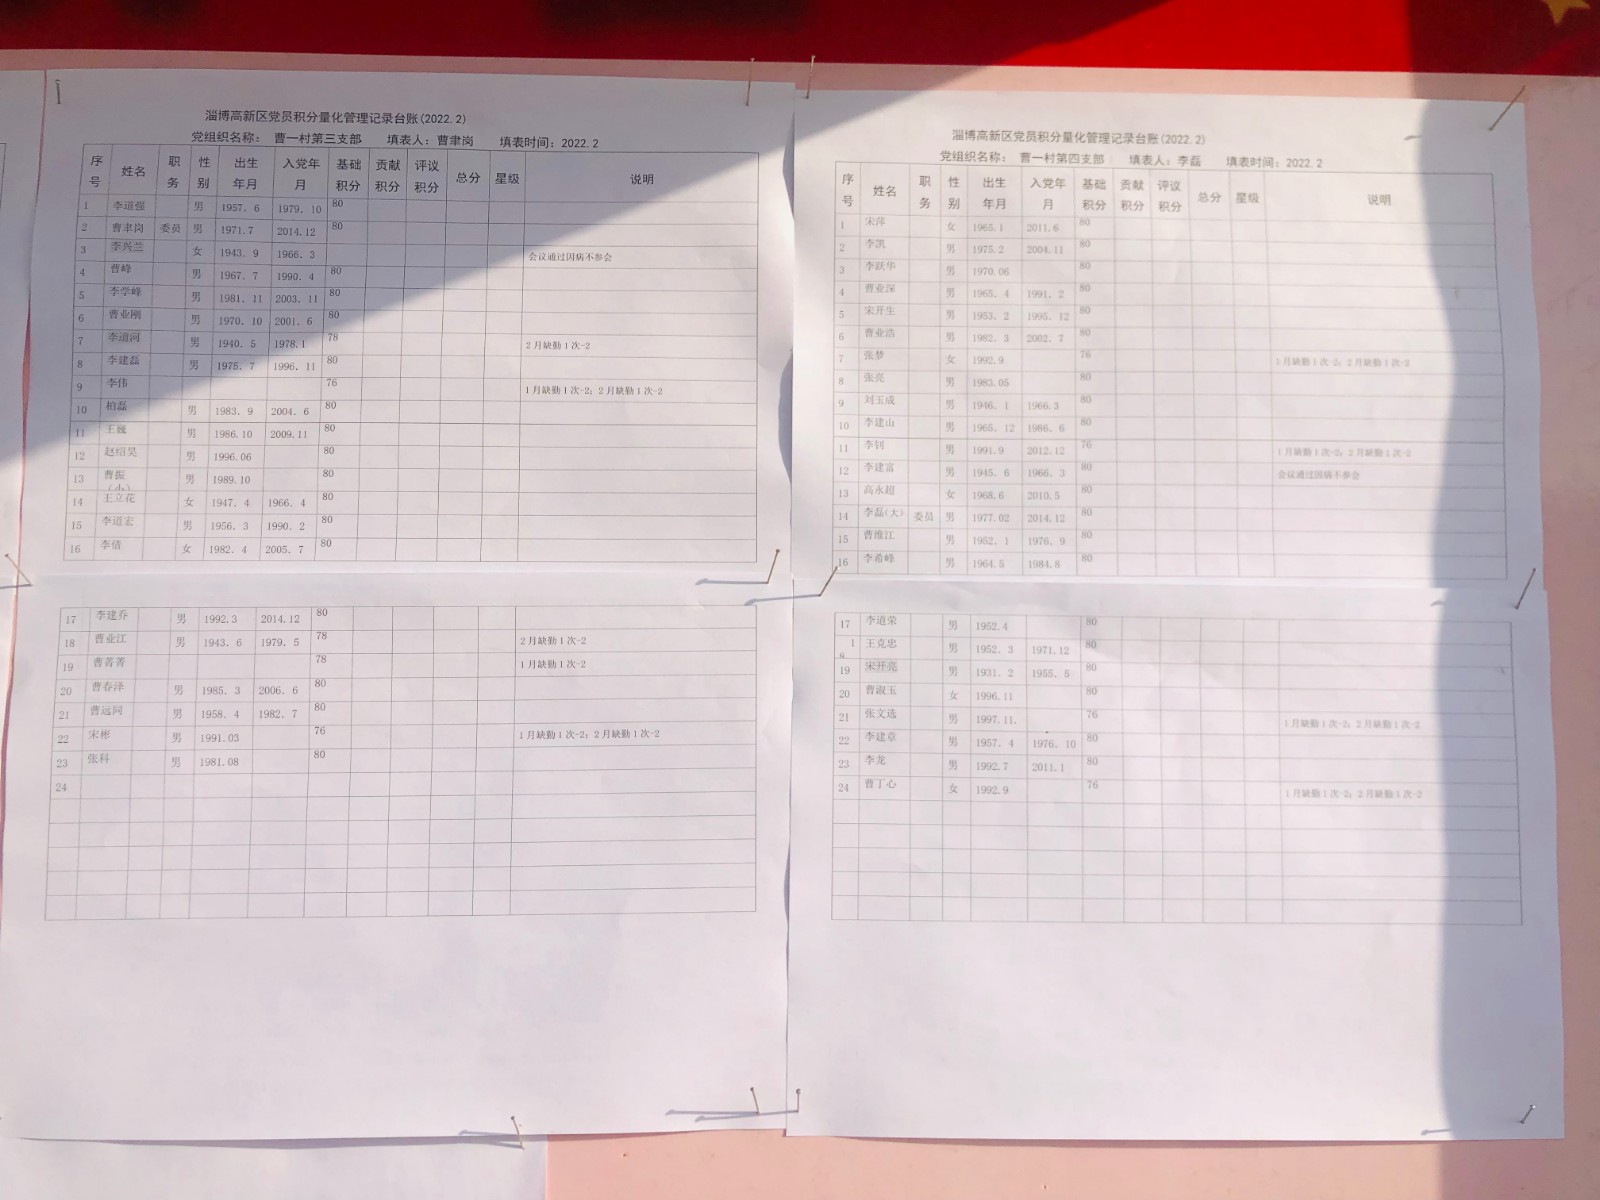 淄博高新区党员积分量化管理记录台账(2022.2)
党组织名称： 曹一村第三支部 填表人：曹聿岗 填表时间：2022.2
序号 姓名 职务 性别 出生年月 入党年月 基础积分 贡献积分 评议积分 总分 星级 说明
1 李道强 男 1957. 6 1979. 10 80
2 曹聿岗 委员 男 1971.7 2014.12 80
3 李兴兰 女 1943. 9 1966. 3 会议通过因病不参会
4 曹峰 男 1967. 7 1990. 4 80
5 李学峰 男 1981. 11 2003. 11 80
6 曹业刚 男 1970. 10 2001. 6 80
7 李道河 男 1940. 5 1978.1 78 2月缺勤1次-2
8 李建磊 男 1975. 7 1996. 11 80
9 李伟 76 1月缺勤1次-2；2月缺勤1次-2
10 柏磊 男 1983. 9 2004. 6 80
11 王巍 男 1986.10 2009.11 80
12 赵绍昊 男 1996.06 80
13 曹振(小) 男 1989.10 80
14 王立花 女 1947. 4 1966. 4 80
15 李道宏 男 1956. 3 1990. 2 80
16 李倩 女 1982. 4 2005. 7 80
17 李建乔 男 1992.3 2014.12 80
18 曹业江 男 1943. 6 1979. 5 78 2月缺勤1次-2
19 曹菁菁 78 1月缺勤1次-2
20 曹春泽 男 1985. 3 2006. 6 80
21 曹远同 男 1958. 4 1982. 7 80
22 宋彬 男 1991.03 76 1月缺勤1次-2；2月缺勤1次-2
23 张科 男 1981.08 80
24
淄博高新区党员积分量化管理记录台账(2022.2)
党组织名称： 曹一村第四支部 填表人：李磊 填表时间：2022.2
序号 姓名 职务 性别 出生年月 入党年月 基础积分 贡献积分 评议积分 总分 星级 说明
1 宋萍 女 1965.1 2011.6 80
2 李凯 男 1975.2 2004.11 80
3 李跃华 男 1970.06 80
4 曹业深 男 1965. 4 1991. 2 80
5 宋开生 男 1953. 2 1995. 12 80
6 曹业浩 男 1982. 3 2002. 7 80
7 张梦 女 1992.9 76 1月缺勤1次-2；2月缺勤1次-2
8 张亮 男 1983.05 80
9 刘玉成 男 1946. 1 1966.3 80
10 李建山 男 1965. 12 1986. 6 80
11 李钊 男 1991.9 2012.12 76 1月缺勤1次-2；2月缺勤1次-2
12 李建富 男 1945. 6 1966. 3 80 会议通过因病不参会
13 高永超 女 1968.6 2010.5 80
14 李磊(大) 委员 男 1977.02 2014.12 80
15 曹维江 男 1952. 1 1976. 9 80
16 李希峰 男 1964.5 1984.8 80
17 李道荣 男 1952.4 80
18 王克忠 男 1952. 3 1971.12 80
19 宋开亮 男 1931. 2 1955. 5 80
20 曹淑玉 女 1996.11 80
21 张文选 男 1997.11. 76 1月缺勤1次-2；2月缺勤1次-2
22 李建章 男 1957. 4 1976. 10 80
23 李龙 男 1992.7 2011.1 80
24 曹丁心 女 1992.9 76 1月缺勤1次-2；2月缺勤1次-2